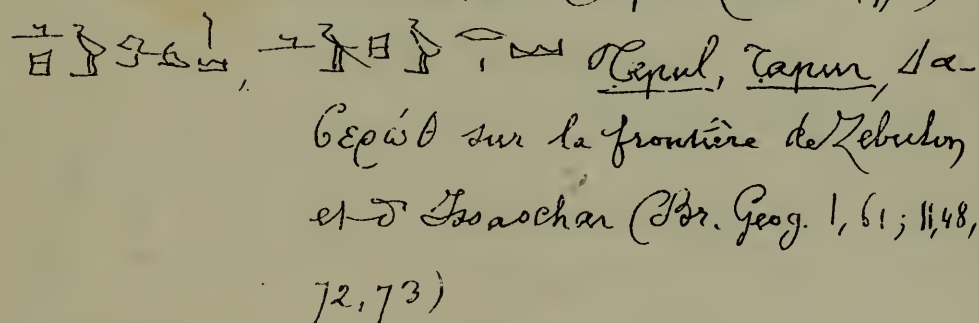 Tepul, Tapur, Δα-
βερώθ sur la frontière de Zebulon
et d'Issaschar (Br. Geog. I, 61; II, 48,
72, 73)